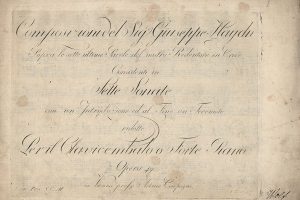 Composizioni del Sig Giuseppe Haydn
Sopra le sette ultime Parole del nostro Redentore in Croce
Consistenti in
Sette Sonate
con un Introduzione ed al Fine un Teremoto
ridotte
Per il Clavicembalo o Forte Piano
Opera 49
Vienna presso Artaria Compagni